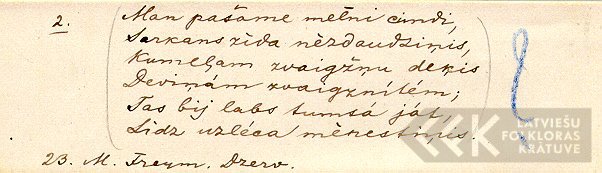 2.
Man pašame melni cimdi,
Sarkans zīda nēzdaudziņis,
Kumeļam zvaigžņu deķis
Deviņám zvaigznítém;
Tas bij labs tumsá ját,
Lídz uzléca mēnestiņis.
23. M. Freym. Dzerv.
LATVIEŠU
FOLKLORAS
KRĀTUVE